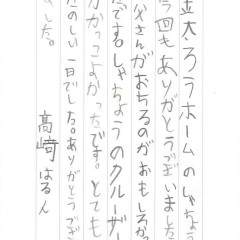 金太ろうホームのしゃちょう
今回もありがとうございました
父さんがおちるのがおもしろか
です。しゃちょうのクルーザー
かっこよかったです。とても
たのしい一日でした。ありがとうござ
した。
高崎はるん